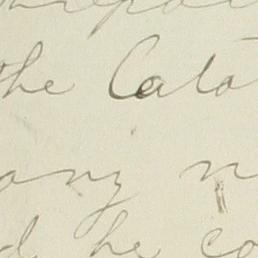 the Cata
any n
d he co